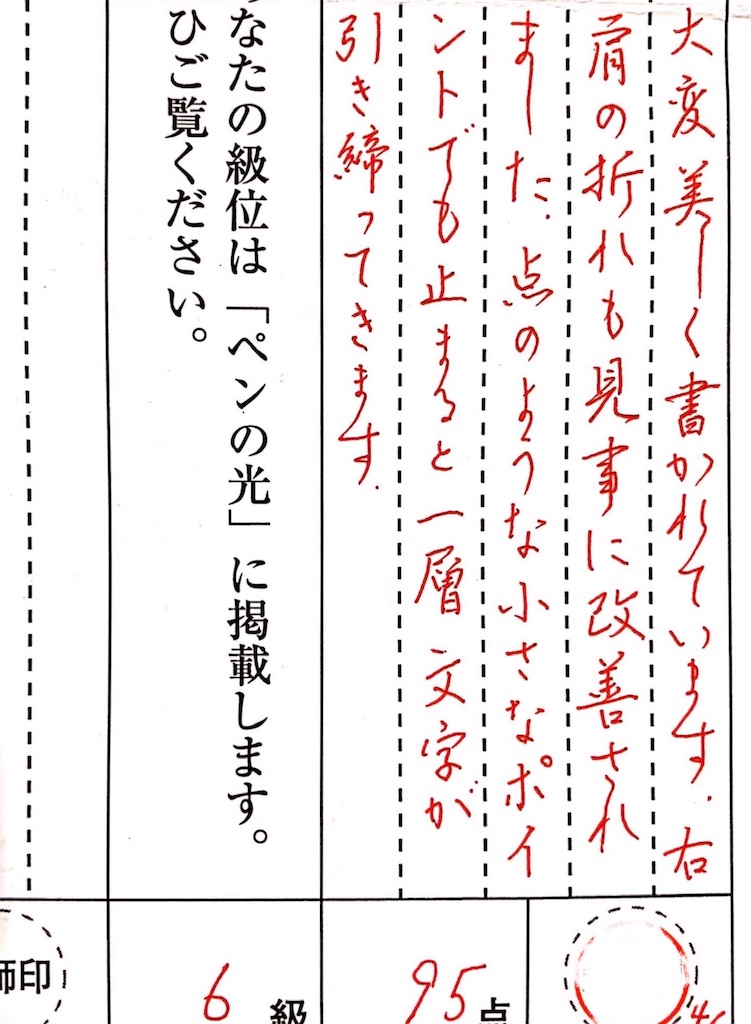 大変美しく書かれています.右
肩の折れも見事に改善され
ました.点のような小さなポイ
ントでも止まると一層文字が
引き締ってきます.
なたの級位は「ペンの光」に掲載します。
ひご覧ください。
95点
6級
師印